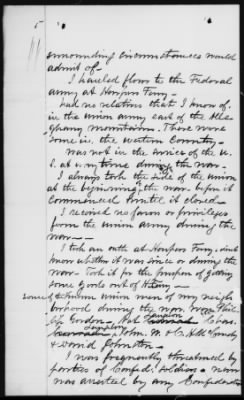 5
surrounding circumstances would
admit of.
I hauled flour to the Federal
army at Harpers Ferry.
had no relations that I know of
in the union army east of the Alle-
ghany mountains. There were
some in the western Country
was not in the service of the U.
S. at any time during the war.
I always took the side of the union
at the beginning of the war before it
commenced & until it closed
I received no favors or privileges
from the union army during the
war
I took an oath at Harpers Ferry, dont
know whether it was since or during the
war. Took it for the purpose of getting
some goods out of
some of the known union men of my neigh-
borhood during the war, were Phil
Gordon. Nat Chas.
John. W. & C. H.
& David Johnston
I was frequently threatened by
parties of Confed. soldiers. never
was arrested by any Confederate